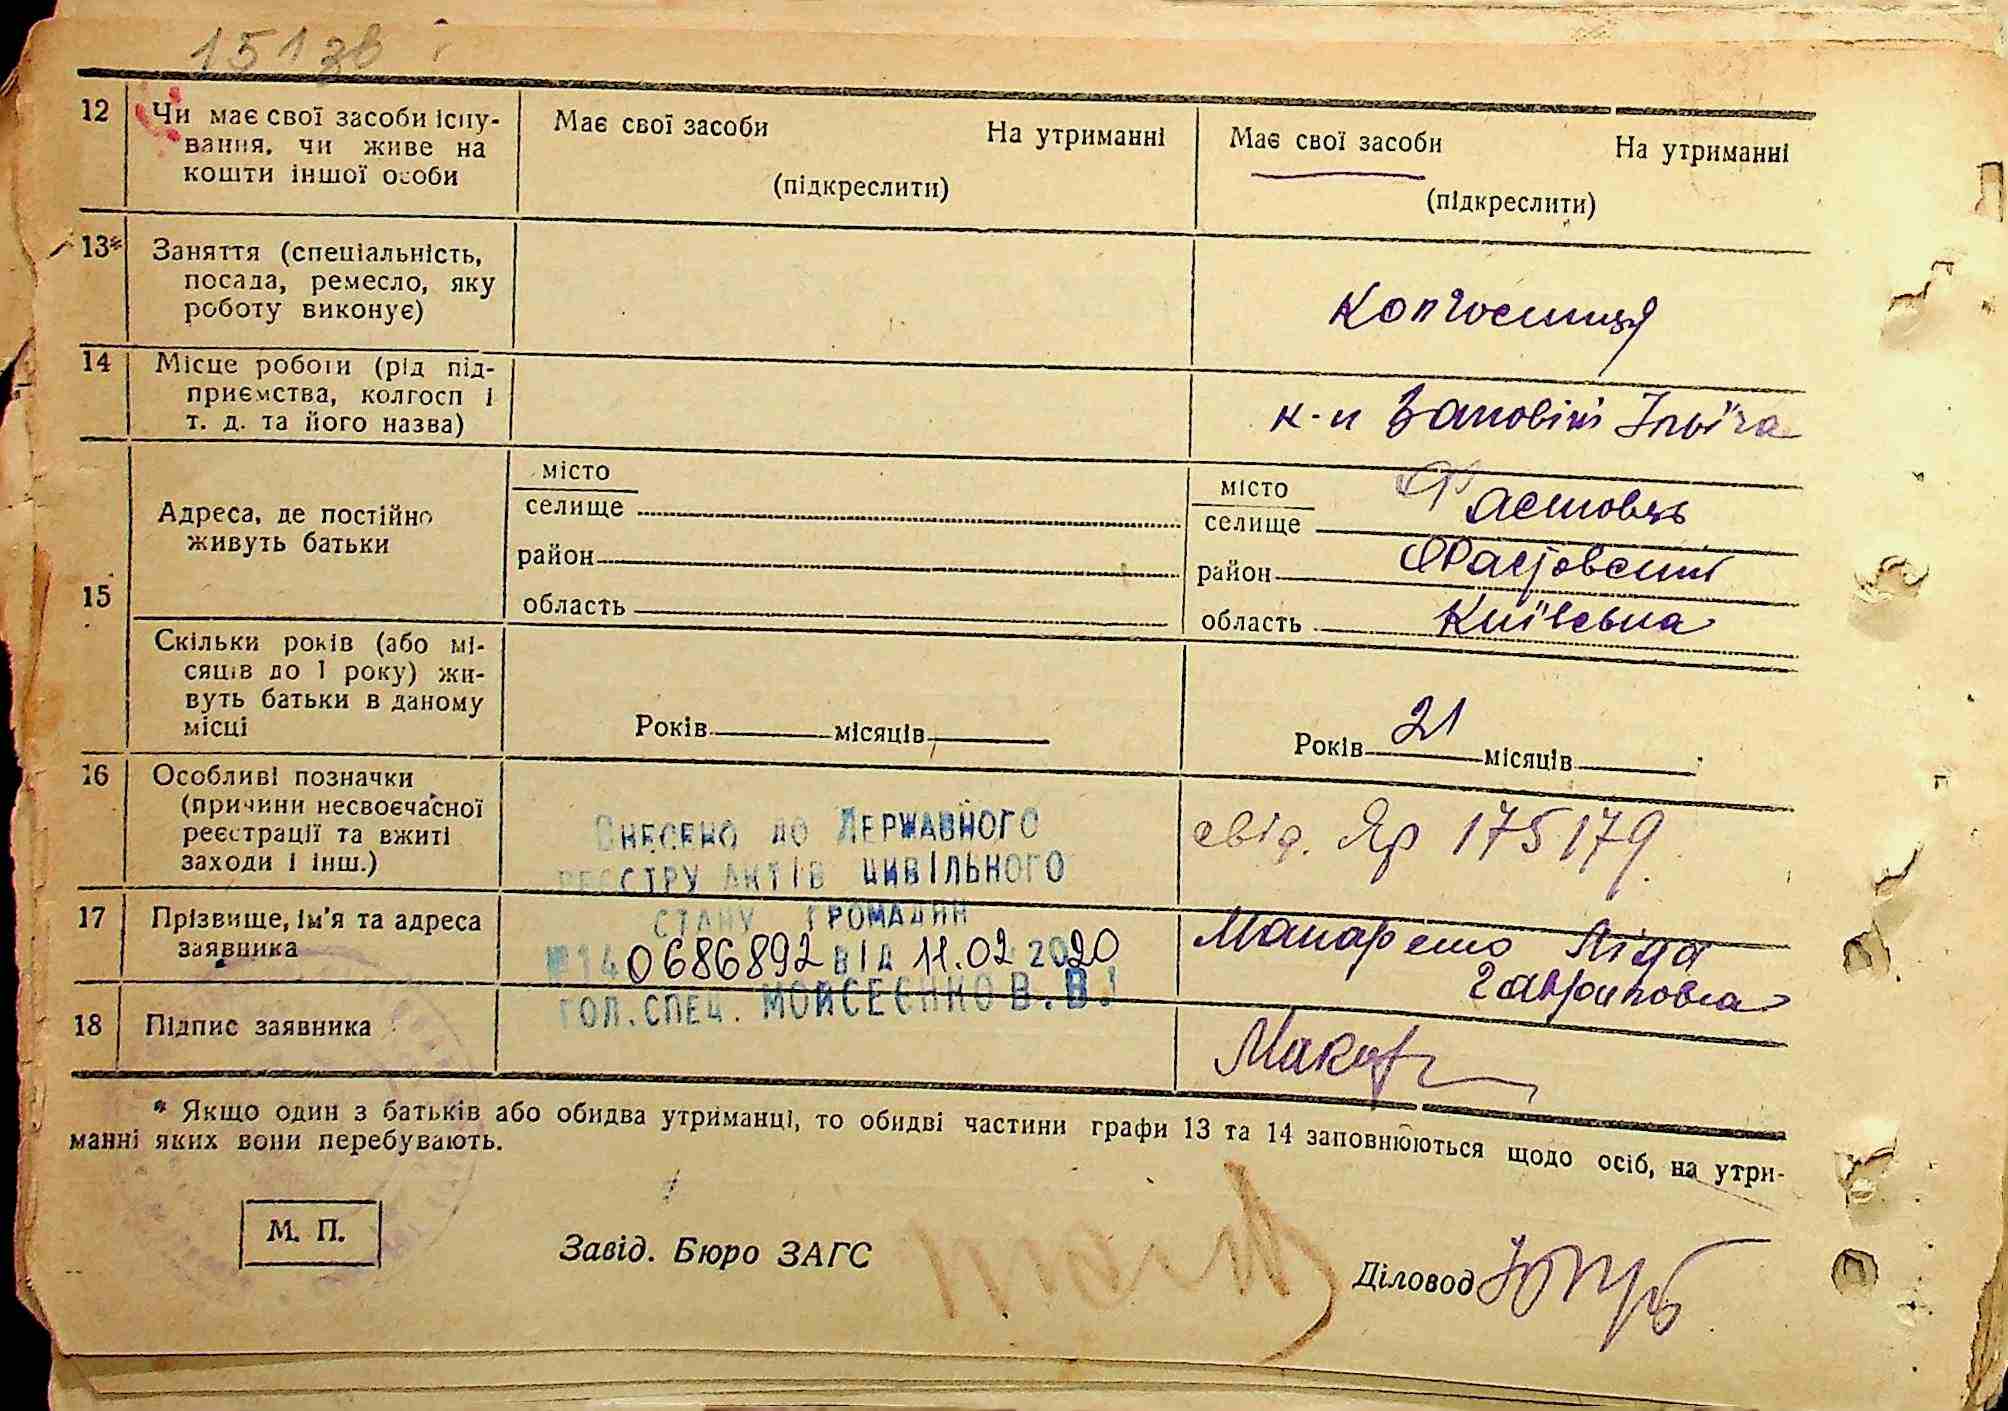 151 зв
12 Чи має свої засоби існу-
вання, чи живе на
кошти іншої особи
Має свої засоби На утриманні
(підкреслити)
Має свої засоби На утриманні
(підкреслити)
13* Заняття (спеціальність,
посада, ремесло, яку
роботу виконує)
Колгоспниця
14 Місце роботи (рід під-
приємства, колгосп і
т. д. та його назва)
к-п Заповіт Ілліча
15
Адреса, де постійно
живуть батьки
місто
селище
район
область
місто
селище Фастовець
район Фастовский
область Київська
Скільки років (або мі-
сяців до 1 року) жи-
вуть батьки в даному
місці
Років місяців
Років 21 місяців
16 Особливі позначки
(причини несвоєчасної
реєстрації та вжиті
заходи і інш.)
свід. Яр 175179
17 Прізвище, ім'я та адреса
заявника
Макаренко Ліда
Гавриловна
Внесено до Державного
реєстру актів цивільного
стану громадян
№ 14 0686892 від 11.02 2020
Гол. спец. Мойсеєнко В. В.
18 Підпис заявника
Макар
* Якщо один з батьків або обидва утриманці, то обидві частини графи 13 та 14 заповнюються щодо осіб, на утри-
манні яких вони перебувають.
М. П.
Завід. Бюро ЗАГС
Діловод